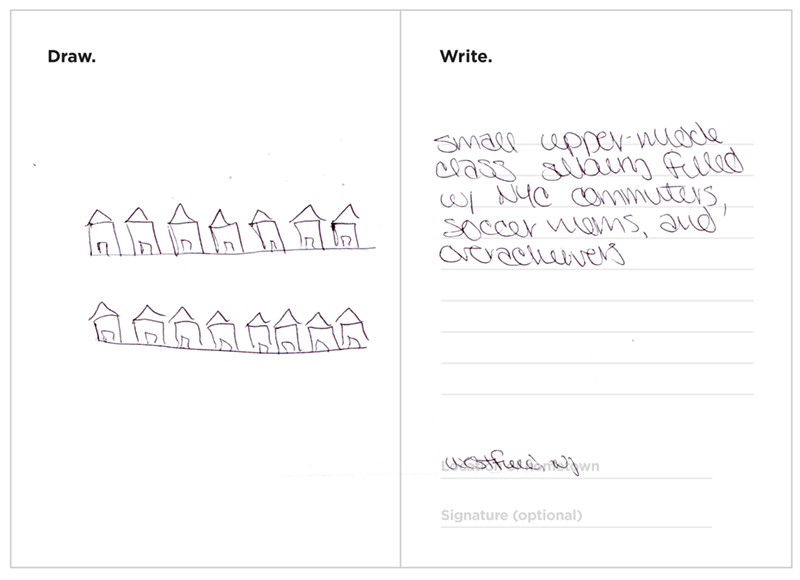 Draw.
Write.
small upper-middle
class suburb filled
w/ NYC commuters,
soccer moms, and
overachievers
westfield, nj
Location of hometown
Signature (optional)